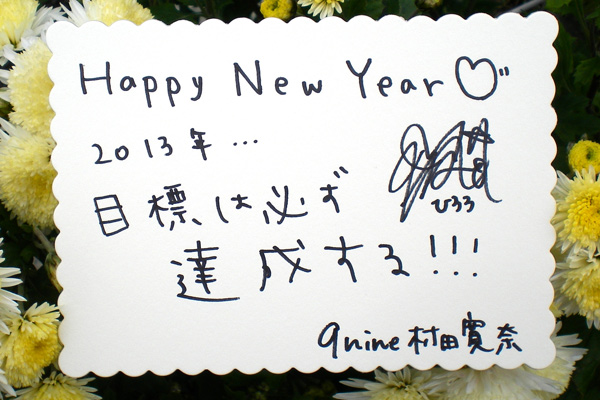 Happy New Year♡"
2013年…
目標は必ず
達成する!!!
ひろろ
9nine 村田寛奈